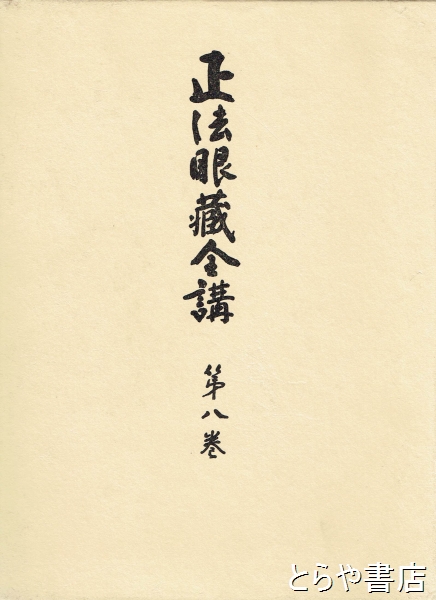 正法眼藏全講
第八巻
とらや書店